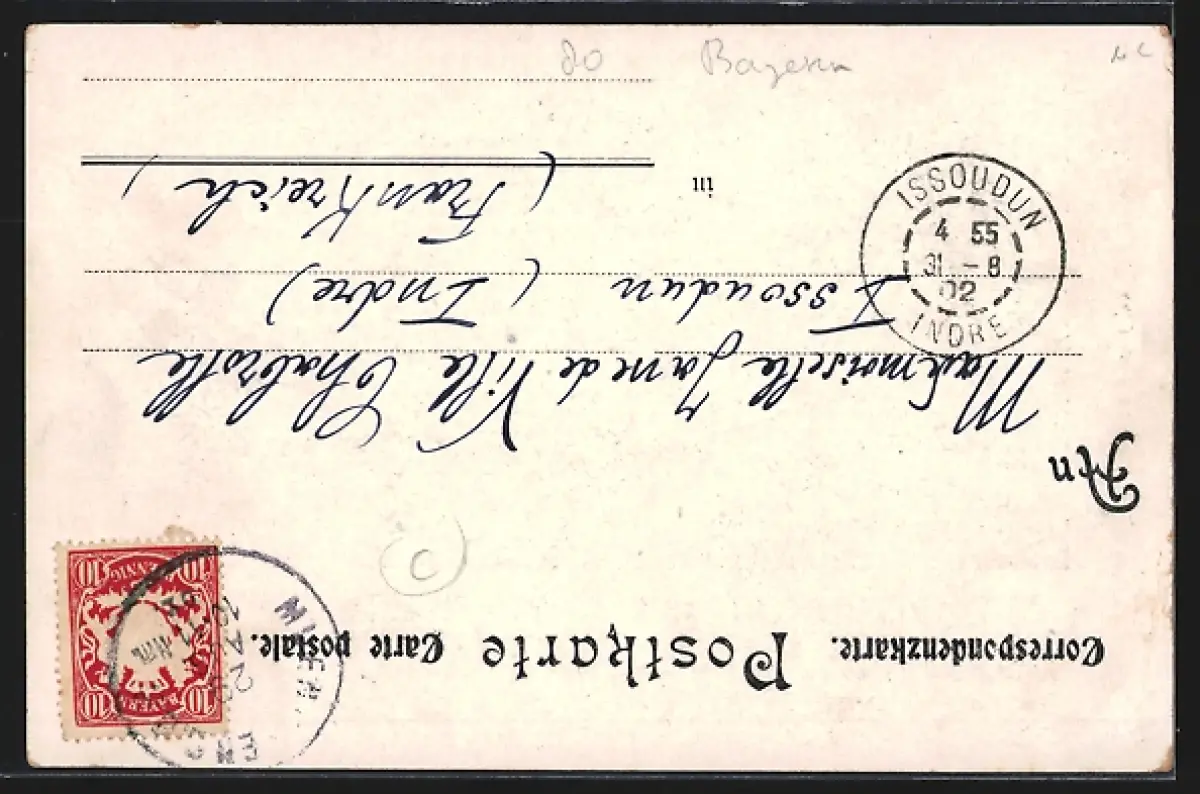 Correspondenzkarte. Postkarte Carte postale.
10 PFENNIG 10
10 BAYERN 10
C
An
Mademoiselle Jane de Villa Chabrolle
Issoudun (Indre)
in (Frankreich)
ISSOUDUN
4 55
31 - 8
02
INDRE
80 Bayern